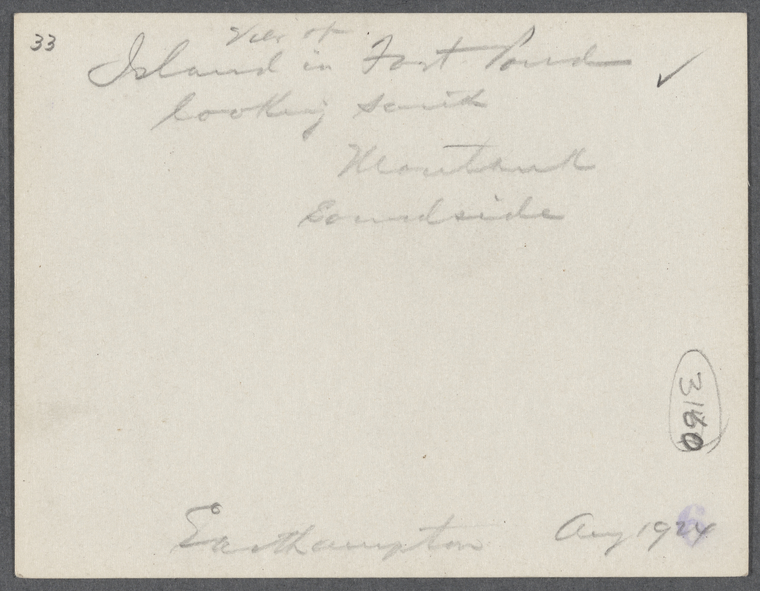 33
View of
Island in Fort Pond
looking south
Montauk
Soundside
3180
Easthampton Aug 1924